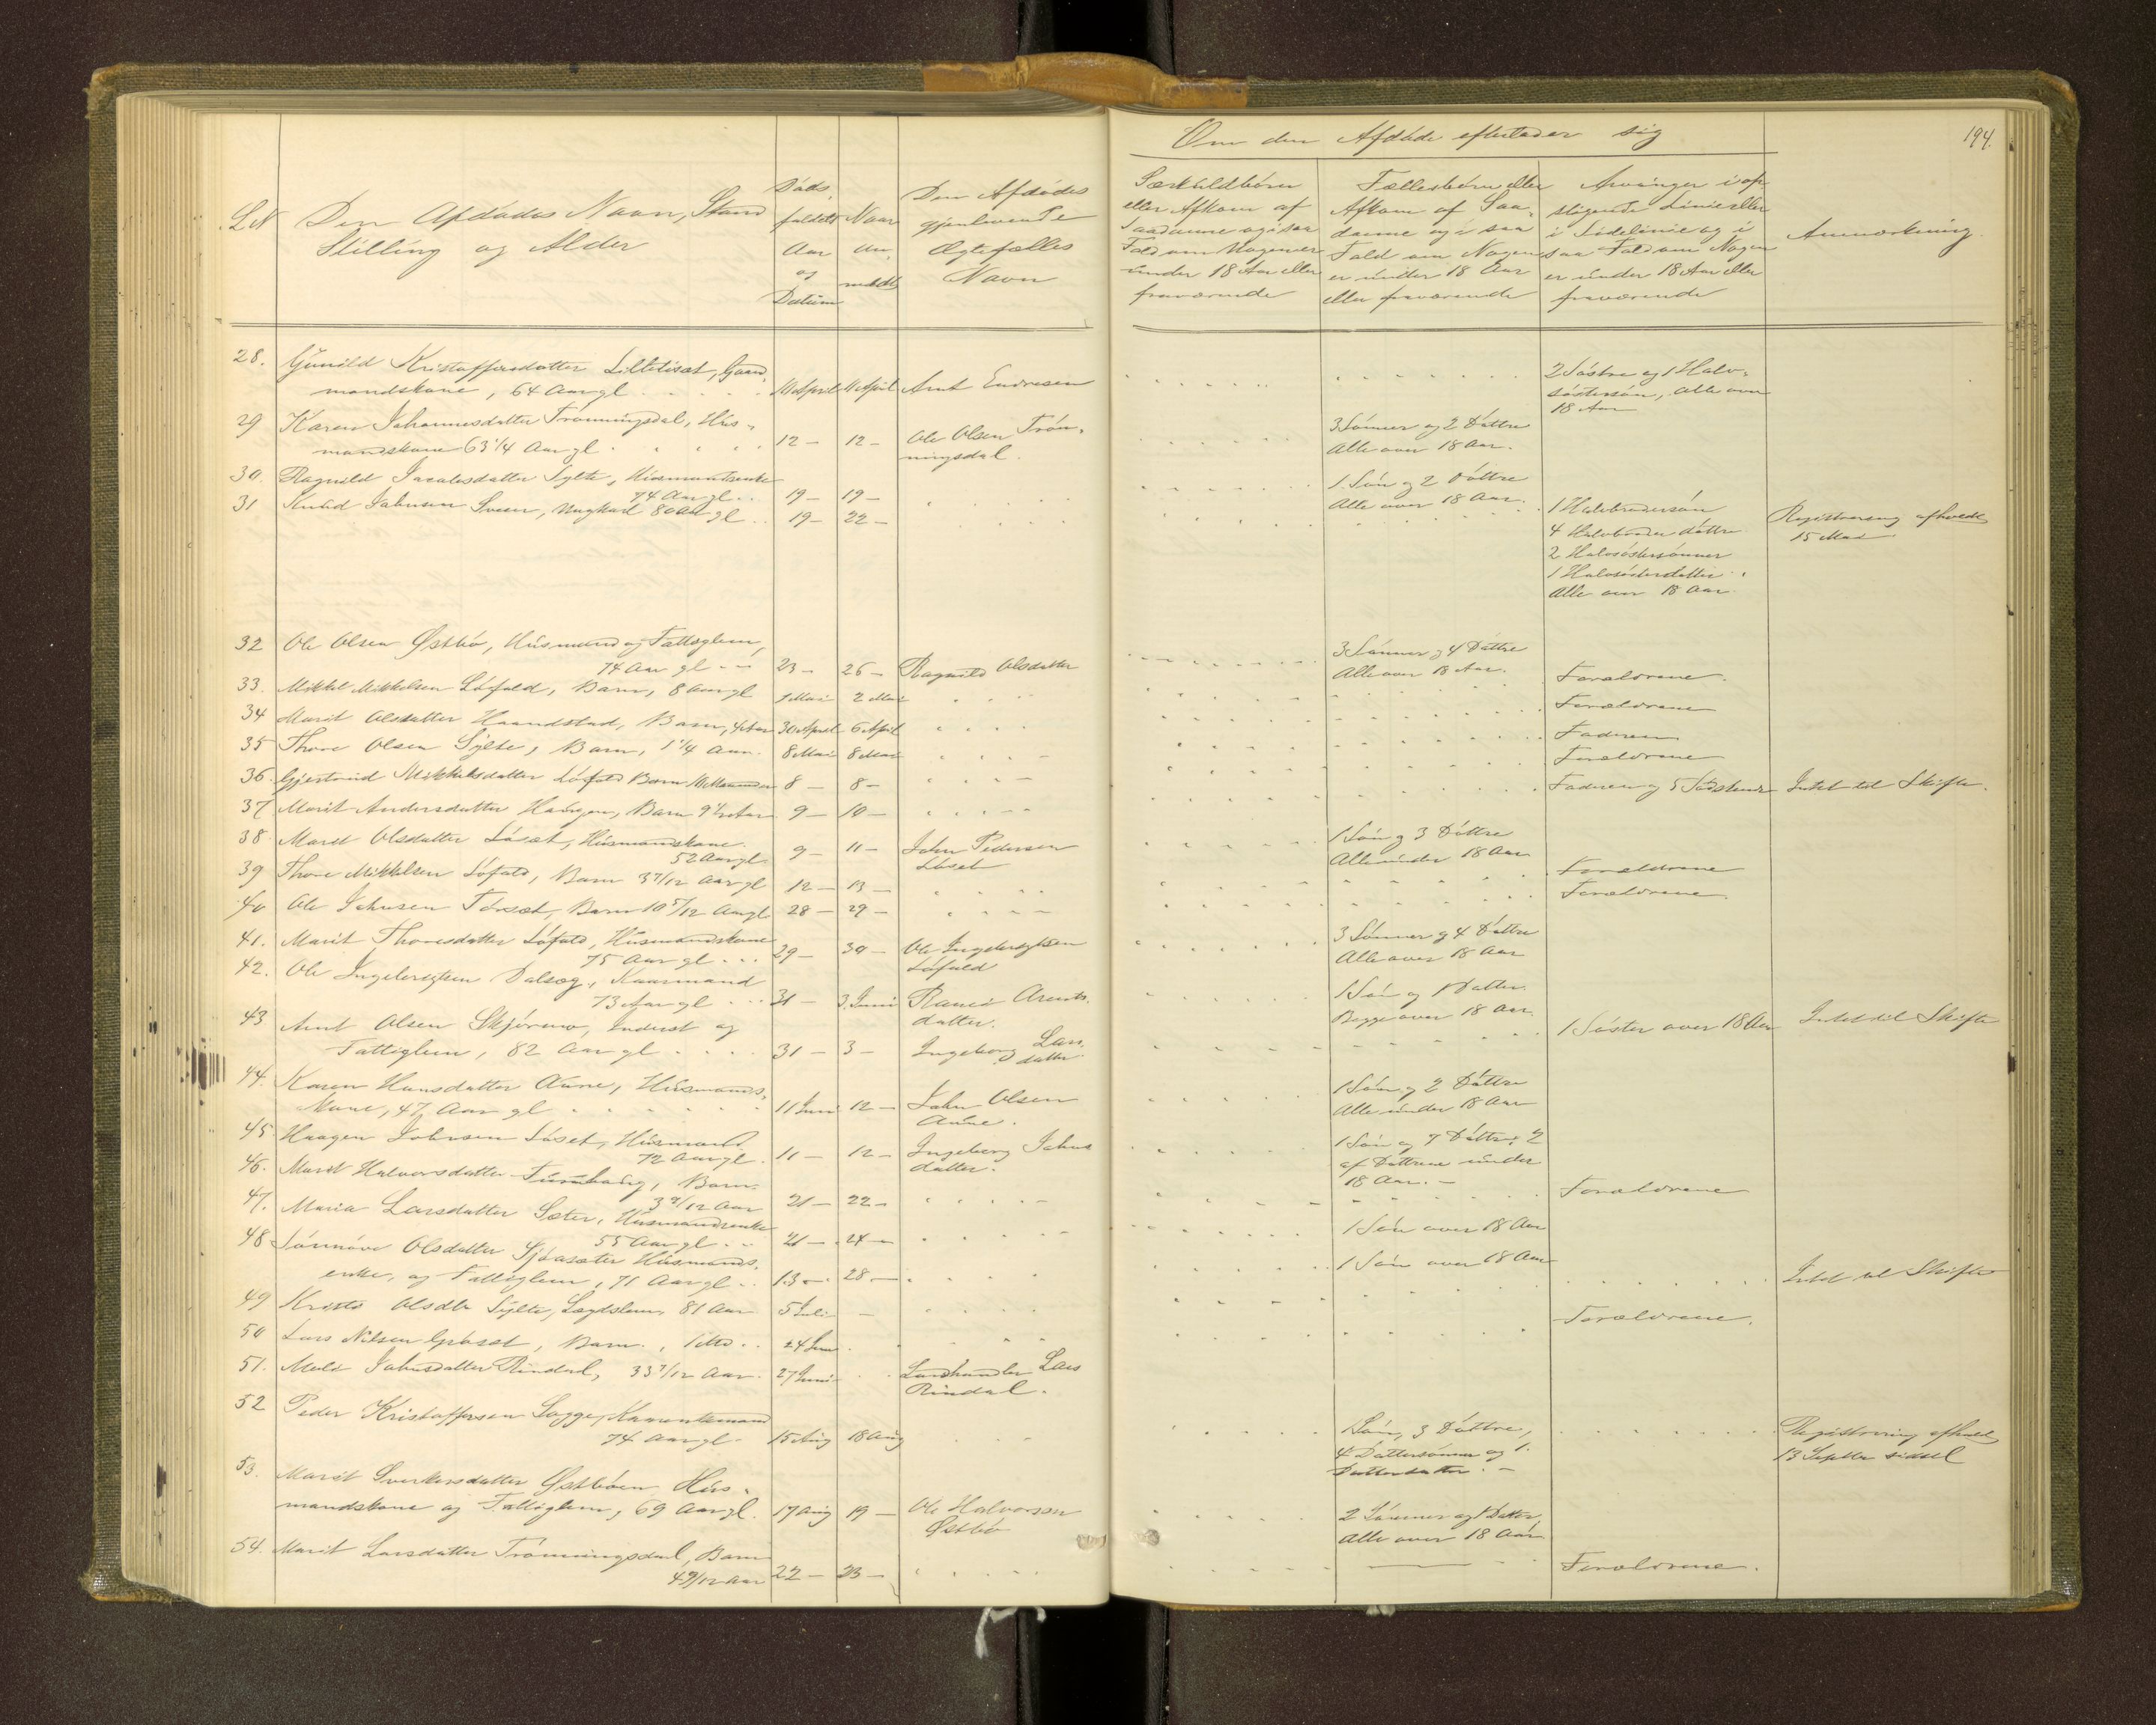 194.
Om den Afdøde efterlader sig
L.N
Den Afdødes Navn, Stand
Stilling og Alder
Døds
faldets
Aar
og
Datum
Naar
an-
meldt
Den Afdødes
gjenlevende
Ægtefælles
Navn
Særkuldbørn
eller Afkom af
Saadanne og i saa
Fald om Nogen er
under 18 Aar eller
fraværende
Fællesbørn eller
Afkom af Saa-
danne og i saa
Fald om Nogen
er under 18 Aar
eller fraværende
Arvinger i op-
stigende Linie eller
i Sidelinie og i
saa Fald om Nogen
er under 18 Aar eller
fraværende
Anmærkning.
28. Gunild Kristoffersdatter Gaard-
mandskone, 64 Aar gl 11 April 11 April Arnt Endresen
2 Søstre og 1 Halv-
søstersøn, Alle over
18 Aar
29 Karen Johannesdatter Trønningsdal, Hus-
mandskone 63 1/4 Aar gl. 12 - 12 - Ole Olsen Trøn-
ningsdal.
3 Sønner og 2 Døttre
Alle over 18 Aar.
30. Ragnild Jacobsdatter Sylte, Husmandsenke
74 Aar gl. 19 - 19 -
1 Søn og 2 Døttre
Alle over 18 Aar.
31 Knud Johnsen Ungkarl 80 Aar gl 19 - 22 -
1 Halvbrodersøn
4 Halvbroderdøttre
2 Halvsøstersønner
1 Halvsøsterdatter
Alle over 18 Aar
Registrering afholdt
15 Mai
32 Ole Olsen Østbø, Husmand og Fattiglem,
74 Aar gl 23 - 26 - Ragnild Olsdatter
3 Sønner og 4 Døttre
Alle over 18 Aar.
33. Mikkel Mikkelsen Løfald, Barn, 8 Aar gl 1 Mai 2 Mai Forældrene.
34 Marit Olsdatter Haandstad, Barn, 4 Aar 30 April 6 April Forældrene
35 Thore Olsen Sylte, Barn, 1 1/4 Aar. 8 Mai 8 Mai Faderen
36. Gjertrud Mikkelsdatter Løfald Barn 8 - 8 - Forældrene
37 Marit Andersdatter Haugen, Barn 9 1/2 Aar 9 - 10 - Faderen og 5 Sødskende Intet til Skifte.
38 Marit Olsdatter Løset, Husmandskone.
52 Aar gl 9 - 11 - John Pedersen
Løset
1 Søn og 3 Døttre
Alle under 18 Aar
39 Thore Mikkelsen Løfald, Barn 3 7/12 Aar gl 12 - 13 - Forældrene
40 Ole Johnsen Torset, Barn 10 5/12 Aar gl 28 - 29 - Forældrene.
41. Marit Thoresdatter Løfald, Husmandskone
75 Aar gl 29 - 30 - Ole Ingebrigtsen
Løfald
3 Sønner og 4 Døttre
Alle over 18 Aar
42. Ole Ingebrigtsen Dalseg, Kaarmand
73 Aar gl 31 - 3 Juni Randi Arents-
datter.
1 Søn og 1 Datter
Begge over 18 Aar.
43 Arnt Olsen Skjermo, Inderst og
Fattiglem, 82 Aar gl 31 - 3 - Ingeborg Lars-
datter
1 Søster over 18 Aar Intet til Skifte
44. Karen Hansdatter Aune, Husmands-
kone, 47 Aar gl 11 Juni 12 - John Olsen
Aune.
1 Søn og 2 Døttre
Alle under 18 Aar
45 Haagen Johnsen Løset, Husmand
72 Aar gl 11 - 12 - Ingeborg Johns
datter.
1 Søn og 7 Døttre, 2
af Døttrene under
18 Aar. -
46. Marit Halvorsdatter Furuhaug, Barn
3 9/12 Aar 21 - 22 - Forældrene
47. Maria Larsdatter Sæter, Husmandsenke
55 Aar gl 21 - 24 - 1 Søn over 18 Aar
48 Sønnøve Olsdatter Husmands-
enke, og Fattiglem, 71 Aar gl 13 - 28 - 1 Søn over 18 Aar Intet til Skifte
49 Olsdtr Sylte, Lægdslem, 81 Aar 5 Juli -
50 Lars Nilsen Gråset, Barn, 24 Juni Forældrene.
51. Johnsdatter Rindal, 33 7/12 Aar. 27 Juni Landhandler Lars
Rindal.
52 Peder Kristoffersen Bagge,
74 Aar gl. 15 Aug 18 Aug
1 Søn, 3 Døttre,
4 Dattersønner og 1
Datterdatter. -
Registrering afholdt
13 Septbr sidstl
53. Marit Sverkersdatter Østbøen Hus-
mandskone og Fattiglem, 69 Aar gl. 17 Aug 19 - Ole Halvorsen
Østbø
2 Sønner og 1 Datter,
Alle over 18 Aar
54. Marit Larsdatter Trønningsdal, Barn
4 9/12 Aar 22 - 23 - Forældrene.